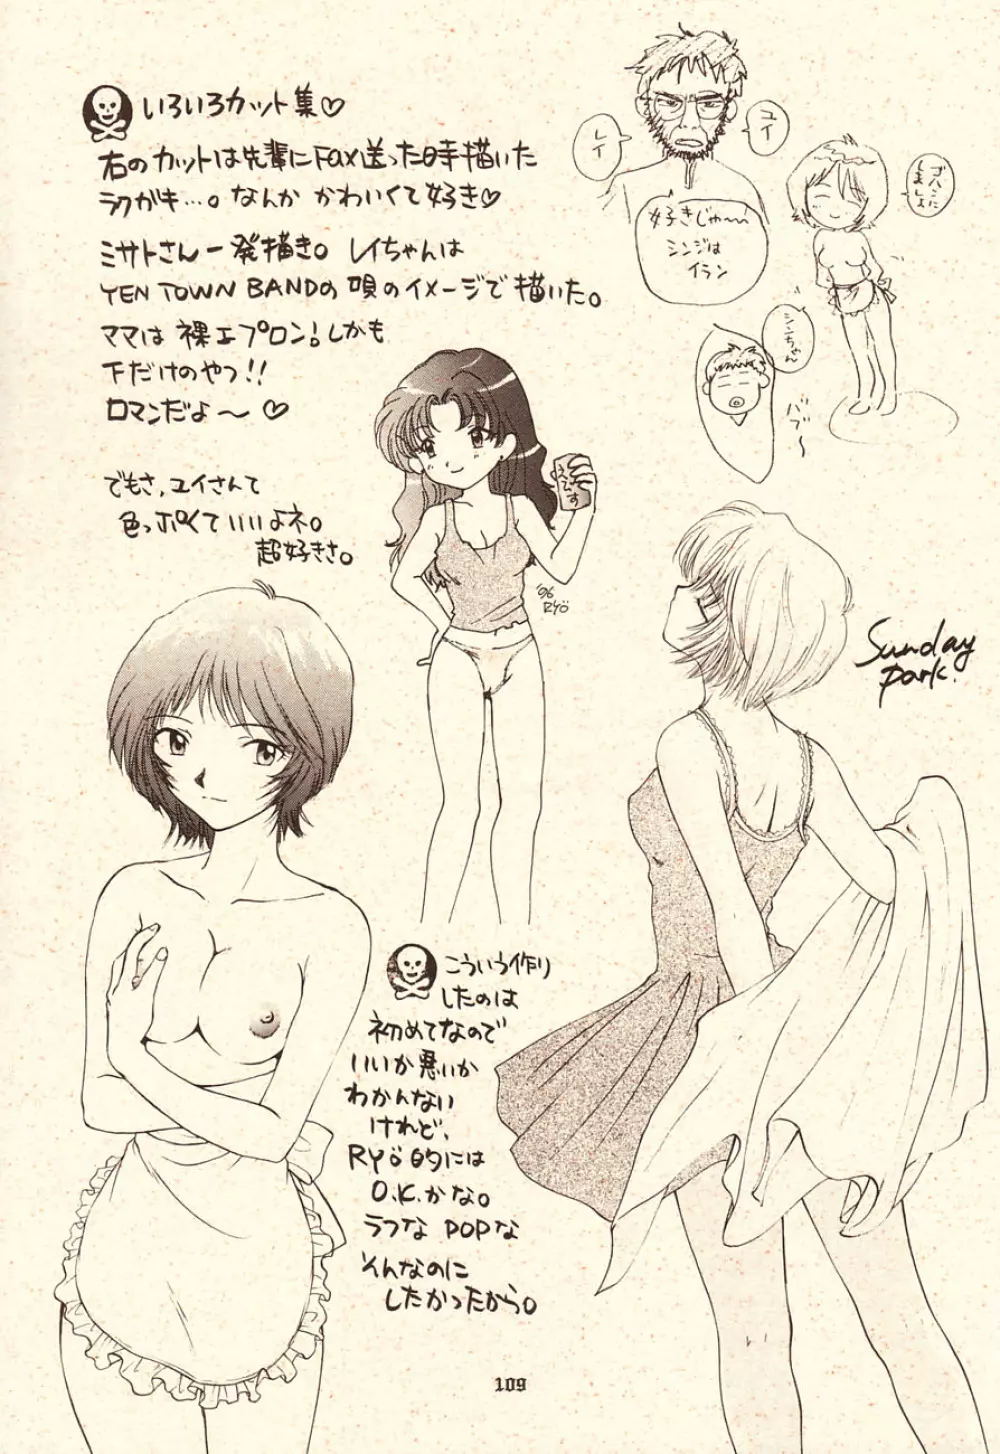 いろいろカット集♡
右のカットは先輩にFax送った時描いた
ラクガキ…。なんか かわいくて好き♡
ミサトさん一発描き。レイちゃんは
YEN TOWN BANDの唄のイメージで描いた。
ママは裸エプロン!しかも
下だけのやつ!!
ロマンだよ〜♡
でもさ,ユイさんて
色っポくていいよネ。
超好きさ。
レイ
ユイ
好きじゃ〜
シンジは
イラン
ゴハンに
しましょ
シンちゃん
バブ〜
えびす
'96
RYö
Sunday
park.
こういう作り
したのは
初めてなので
いいか悪いか
わかんない
けれど、
RYö的には
O.K.かな。
ラフな POPな
そんなのに
したかったから。
109